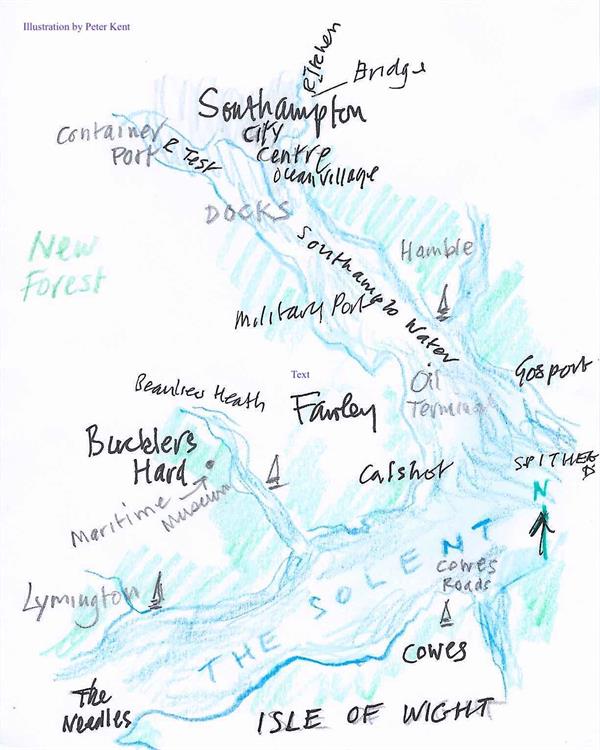 Illustration by Peter Kent
R Itchen
Bridge
Southampton
City
Centre
Ocean Village
Container
Port
R Test
DOCKS
New
Forest
Southampto Water
Hamble
Military Port
Gosport
Text
Oil
Terminal
Beaulieu Heath
Fawley
Bucklers
Hard
Calshot
SPITHEAD
Maritime
Museum
N
THE SOLENT
Cowes
Roads
Lymington
Cowes
The
Needles
ISLE OF WIGHT